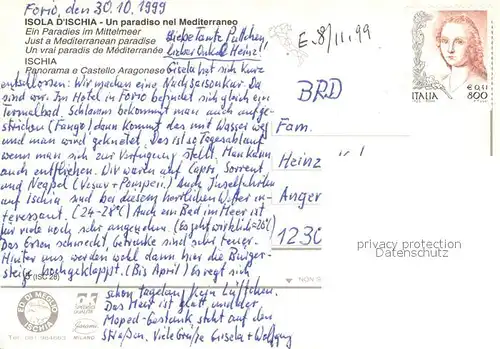 Forio, den 30.10.1999
ISOLA D'ISCHIA - Un paradiso nel Mediterraneo
Ein Paradies im Mittelmeer
Just a Mediterranean paradise
Un vrai paradis de Méditerranée
ISCHIA
Panorama e Castello Aragonese
Liebe Tante Puttchen
Lieber Onkel Heinz!!
Gisela hat sich kurz
entschlossen: Wir machen eine Nachsaisonkur. Da
sind wir. Im Hotel in Forio befindet sich gleich ein
Termalbad. Schlamm bekommt man auch aufge-
strichen (Fango) dann kommt das mit Wasser weg
und man wird geknetet. Das ist so Tagesablauf
wenn man sich zur Verfügung stellt. Man kann
auch entfliehen. Wir waren auf Capri, Sorrent
und Neapel (Vesuv + Pompeji.) Auch Inselfahrten
auf Ischia sind bei diesem herrlichen Wetter in-
teressant. (24-28°C) Auch ein Bad im Meer ist
für viele noch sehr angenehm. (Es geht wirklich = 20°C)
Das Essen schmeckt, Getränke sind sehr teuer.
Hinter uns werden wohl dann hier die Bürger-
steige hochgeklappt. (Bis April) Es regt sich
schon tagelang kein Lüftchen.
Das Meer ist glatt und der
Moped-Gestank steht auf den
Straßen. Viele Grüße Gisela + Wolfgang
E. 8/11.99
BRD
Fam.
Heinz
Anger
1230
ITALIA
800
privacy protection
Datenschutz
(ISC 28)
ED. DI MEGLIO
ISCHIA
MILANO